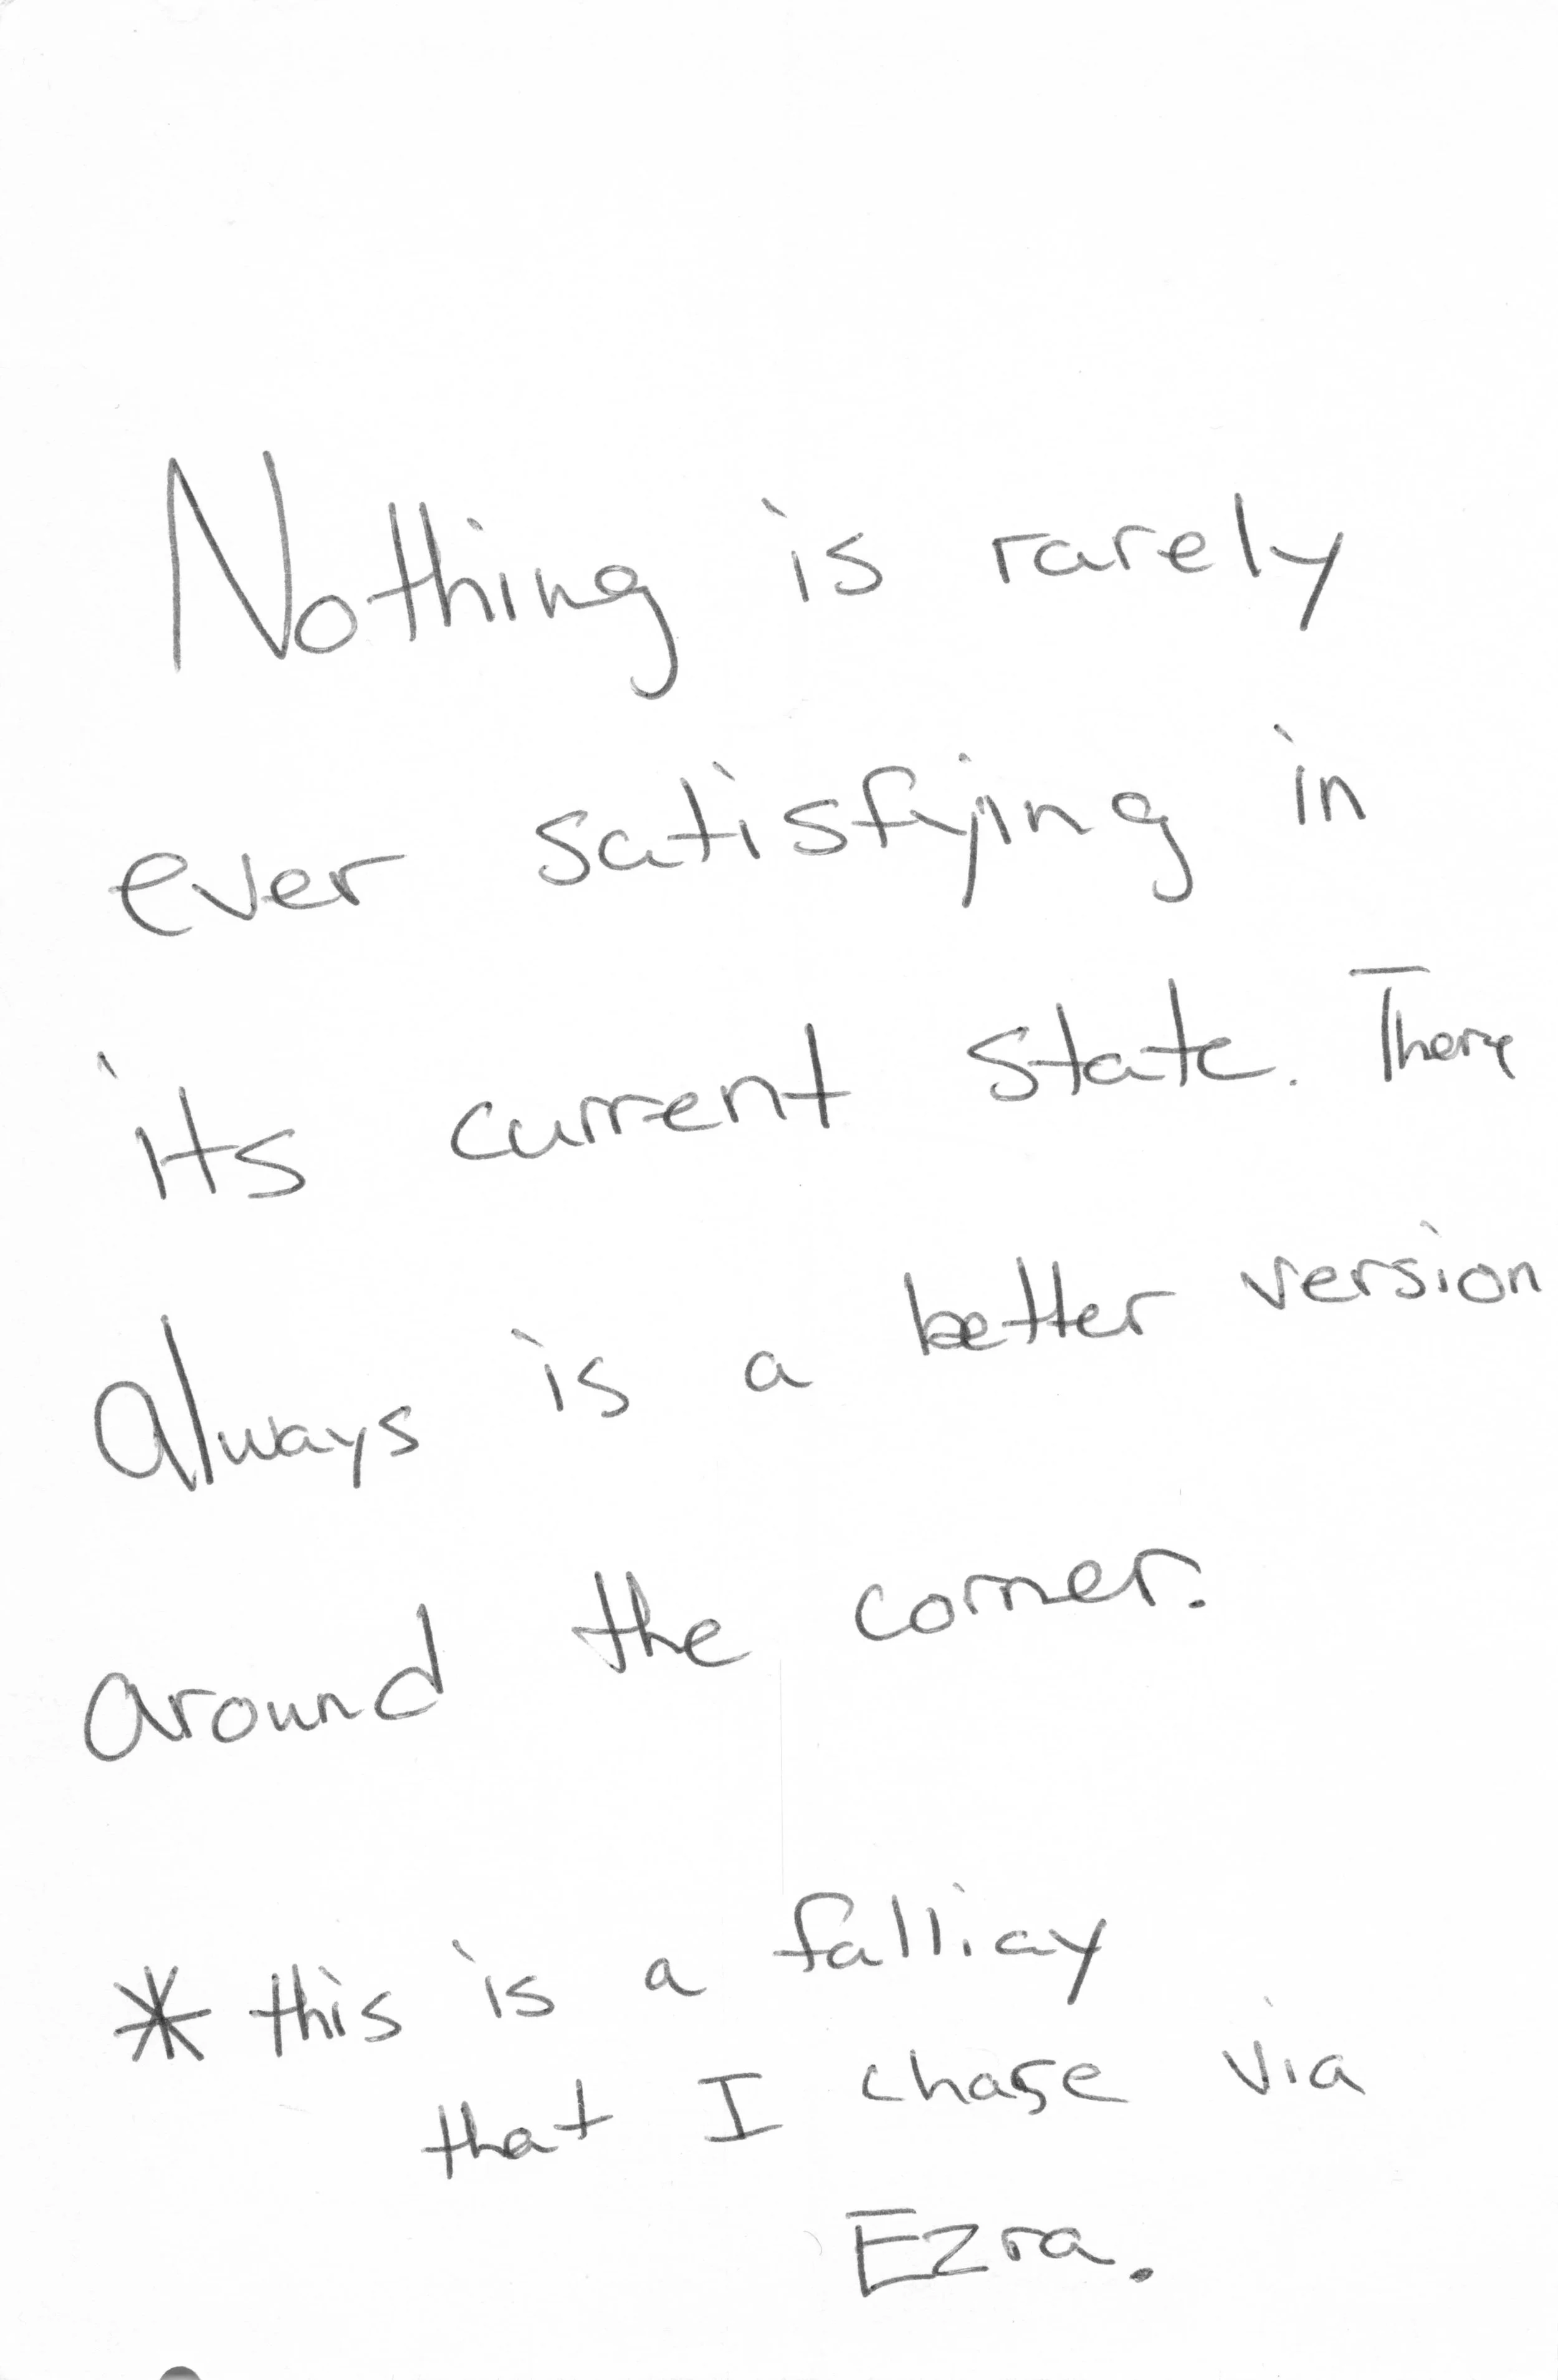 Nothing is rarely
ever satisfying in
its current state. There
always is a better version
around the corner.
* this is a falliay
that I chase via
Ezra.